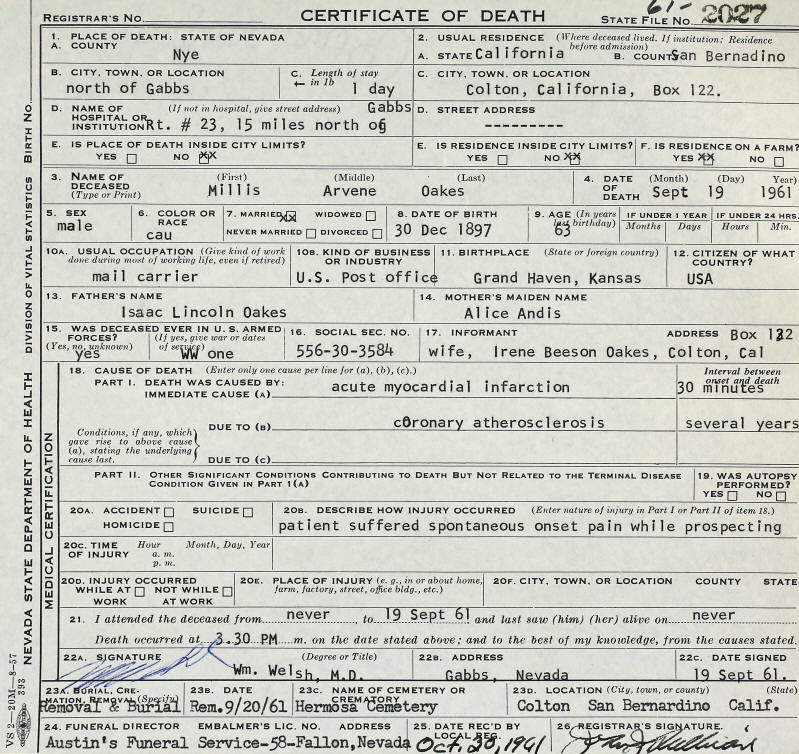 REGISTRAR'S NO. CERTIFICATE OF DEATH STATE FILE NO. 61- 2027
1. PLACE OF DEATH: STATE OF NEVADA
A. COUNTY
Nye
2. USUAL RESIDENCE (Where deceased lived. If institution: Residence before admission)
A. STATE California B. COUNTY San Bernadino
B. CITY, TOWN, OR LOCATION
north of Gabbs
C. Length of stay in 1b
1 day
C. CITY, TOWN, OR LOCATION
Colton, California, Box 122.
D. NAME OF HOSPITAL OR INSTITUTION (If not in hospital, give street address) Gabbs
Rt. # 23, 15 miles north of
D. STREET ADDRESS
---------
E. IS PLACE OF DEATH INSIDE CITY LIMITS?
YES NO XX
E. IS RESIDENCE INSIDE CITY LIMITS?
YES NO XX
F. IS RESIDENCE ON A FARM?
YES XX NO
3. NAME OF DECEASED (Type or Print)
(First) (Middle) (Last)
Millis Arvene Oakes
4. DATE OF DEATH (Month) (Day) Year)
Sept 19 1961
5. SEX
male
6. COLOR OR RACE
cau
7. MARRIED XX WIDOWED
NEVER MARRIED DIVORCED
8. DATE OF BIRTH
30 Dec 1897
9. AGE (In years last birthday)
63
IF UNDER 1 YEAR
Months Days
IF UNDER 24 HRS.
Hours Min.
10A. USUAL OCCUPATION (Give kind of work done during most of working life, even if retired)
mail carrier
10B. KIND OF BUSINESS OR INDUSTRY
U.S. Post office
11. BIRTHPLACE (State or foreign country)
Grand Haven, Kansas
12. CITIZEN OF WHAT COUNTRY?
USA
13. FATHER'S NAME
Isaac Lincoln Oakes
14. MOTHER'S MAIDEN NAME
Alice Andis
15. WAS DECEASED EVER IN U. S. ARMED FORCES?
(Yes, no, unknown) (If yes, give war or dates of service)
yes WW one
16. SOCIAL SEC. NO.
556-30-3584
17. INFORMANT ADDRESS Box 122
wife, Irene Beeson Oakes, Colton, Cal
18. CAUSE OF DEATH (Enter only one cause per line for (a), (b), (c).)
PART I. DEATH WAS CAUSED BY:
IMMEDIATE CAUSE (A) acute myocardial infarction
Interval between onset and death
30 minutes
Conditions, if any, which gave rise to above cause (a), stating the underlying cause last.
DUE TO (B) coronary atherosclerosis several years
DUE TO (C)
PART II. OTHER SIGNIFICANT CONDITIONS CONTRIBUTING TO DEATH BUT NOT RELATED TO THE TERMINAL DISEASE
CONDITION GIVEN IN PART 1(A)
19. WAS AUTOPSY PERFORMED?
YES NO
20A. ACCIDENT SUICIDE
HOMICIDE
20B. DESCRIBE HOW INJURY OCCURRED (Enter nature of injury in Part I or Part II of item 18.)
patient suffered spontaneous onset pain while prospecting
20C. TIME OF INJURY Hour Month, Day, Year
a. m.
p. m.
20D. INJURY OCCURRED
WHILE AT WORK NOT WHILE AT WORK
20E. PLACE OF INJURY (e. g., in or about home, farm, factory, street, office bldg., etc.)
20F. CITY, TOWN, OR LOCATION COUNTY STATE
21. I attended the deceased from never to 19 Sept 61 and last saw (him) (her) alive on never
Death occurred at 3.30 PM m. on the date stated above; and to the best of my knowledge, from the causes stated.
22A. SIGNATURE (Degree or Title)
Wm. Welsh, M.D.
22B. ADDRESS
Gabbs, Nevada
22C. DATE SIGNED
19 Sept 61.
23A. BURIAL, CREMATION, REMOVAL (Specify)
Removal & Burial
23B. DATE
Rem.9/20/61
23C. NAME OF CEMETERY OR CREMATORY
Hermosa Cemetery
23D. LOCATION (City, town, or county) (State)
Colton San Bernardino Calif.
24. FUNERAL DIRECTOR EMBALMER'S LIC. NO. ADDRESS
Austin's Funeral Service-58-Fallon,Nevada
25. DATE REC'D BY LOCAL REG.
Oct. 20, 1961
26. REGISTRAR'S SIGNATURE.
NEVADA STATE DEPARTMENT OF HEALTH DIVISION OF VITAL STATISTICS BIRTH NO.
MEDICAL CERTIFICATION
VS 2—20M—8-57
393